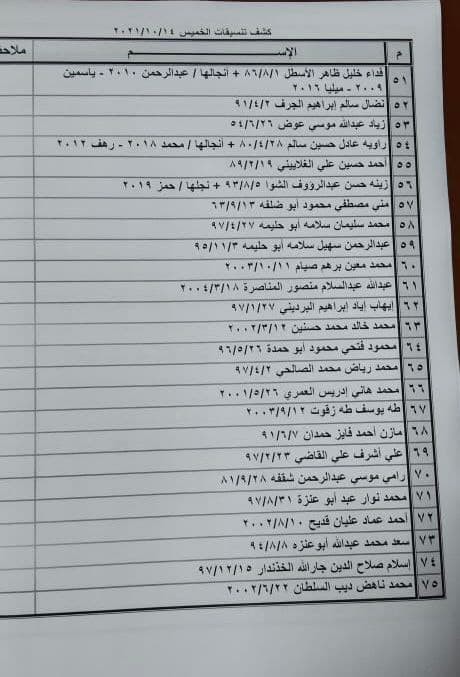 كشف تنسيقات الخميس ٢٠٢١/١٠/١٤
م الإســـــــــم ملاحظ
٥١ فداء خليل ظاهر الأسطل ٨٦/٨/١ + أنجالها / عبدالرحمن ٢٠١٠ - ياسمين
٢٠٠٩ - ميليا ٢٠١٦
٥٢ نضال سالم إبراهيم الجرف ٩١/٤/٢
٥٣ زياد عبدالله موسي عوض ٥٤/٦/٢٦
٥٤ راويه عادل حسين سالم ٨٠/٤/٢٨ + أنجالها / محمد ٢٠١٨ - رهف ٢٠١٢
٥٥ أحمد حسين علي الغلاييني ٨٩/٢/١٩
٥٦ زينه حسن عبدالرؤوف الشوا ٩٣/٨/٥ + نجلها / حمز ٢٠١٩
٥٧ مني مصطفي محمود أبو ضلفه ٦٣/٩/١٣
٥٨ محمد سليمان سلامه أبو حليمه ٩٧/٤/٢٧
٥٩ عبدالرحمن سهيل سلامه أبو حليمه ٩٥/١١/٣
٦٠ محمد معين برهم صيام ٢٠٠٣/١٠/١١
٦١ عبدالله عبدالسلام منصور المناصرة ٢٠٠٤/٣/١٨
٦٢ إيهاب إياد إبراهيم البرديني ٩٧/١/٢٧
٦٣ محمد خالد محمد حسنين ٢٠٠٢/٣/١٢
٦٤ محمود فتحي محمود أبو حمدة ٩٦/٥/٢٦
٦٥ محمد رياض محمد الصالحي ٩٧/٤/٢
٦٦ محمد هاني إدريس العمري ٢٠٠١/٥/٢٦
٦٧ طه يوسف طه زقوت ٢٠٠٣/٩/١٢
٦٨ مازن أحمد فايز حمدان ٩١/٦/٧
٦٩ علي أشرف علي القاضي ٩٧/٢/٢٣
٧٠ رامي موسي عبدالرحمن شقفه ٨١/٩/٢٨
٧١ محمد نوار عبد أبو عنزة ٩٧/٨/٣١
٧٢ أحمد عماد عليان قديح ٢٠٠٢/٨/١٠
٧٣ سعد محمد عبدالله أبوعنزه ٩٤/٨/٨
٧٤ إسلام صلاح الدين جارالله الخذندار ٩٧/١٢/١٥
٧٥ محمد ناهض ديب السلطان ٢٠٠٢/٦/٢٢